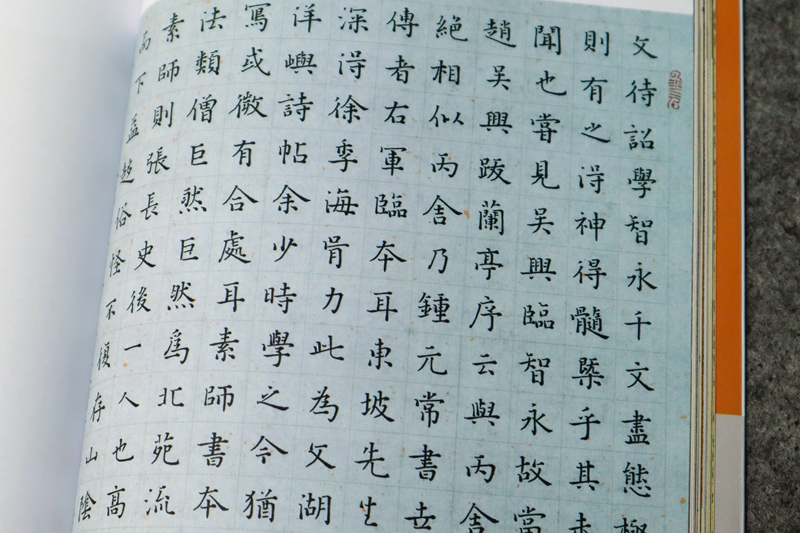 文待詔學智永千文盡態極
則有之淂神得髓槩乎其未
聞也嘗見吴興臨智永故當
趙吴興跋蘭亭序云與丙舍
絕相似丙舍乃鍾元常書世
傳者右軍臨本耳東坡先生
深淂徐季海骨力此為文湖
洋嶼詩帖余少時學之今猶
寫或微有合處耳素師書本
法類僧巨然巨然為北苑流
素師則張長史後一人也高
而下益趍俗怪不復存山陰